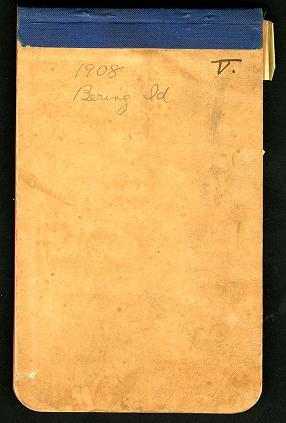 1908
V.
Bering Id